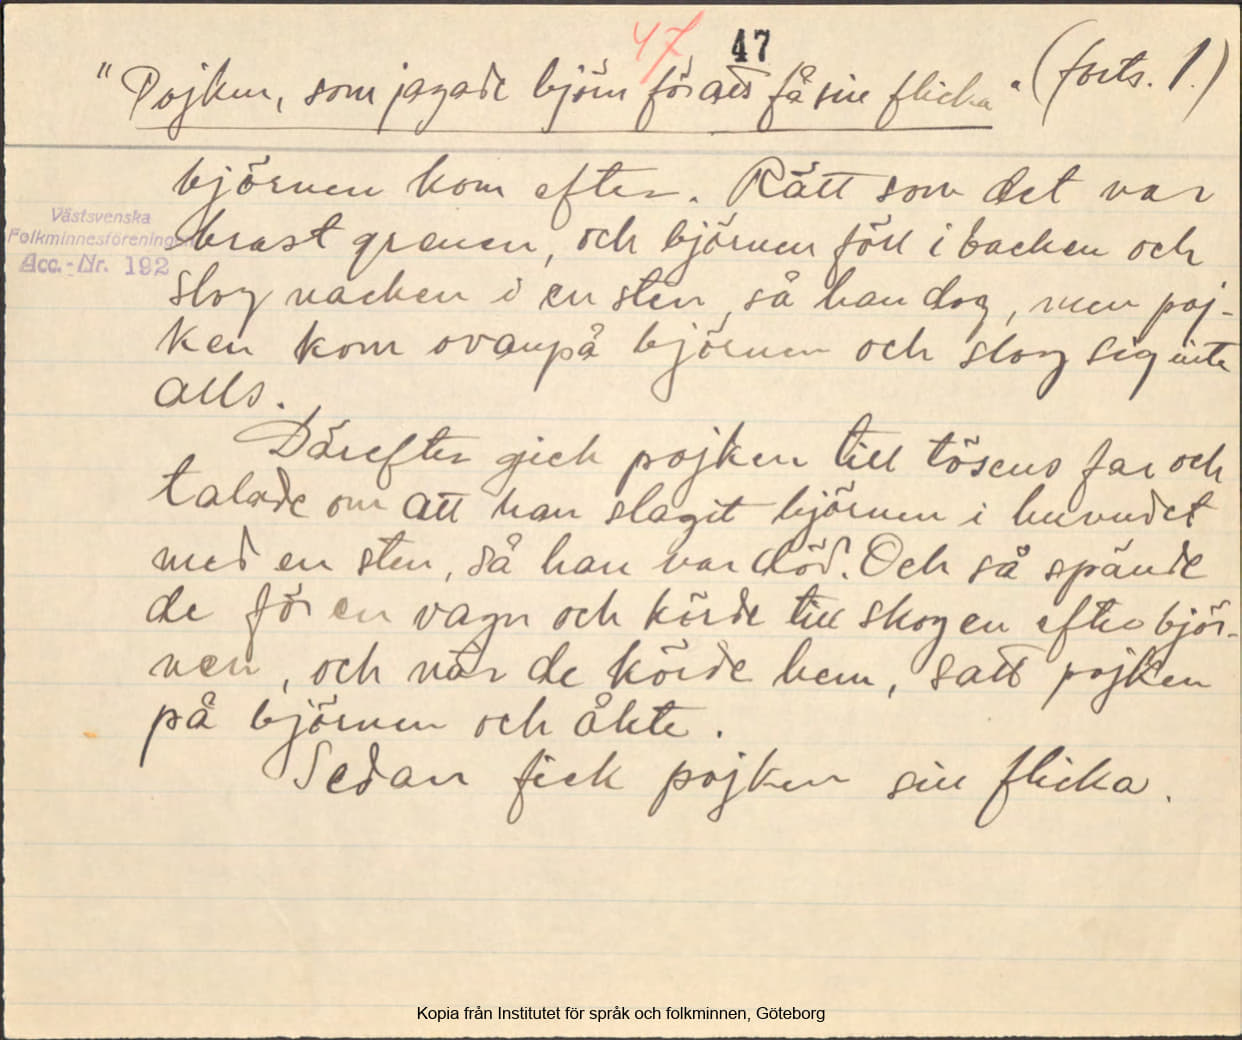 47 47
"Pojken, som jagade björn för att få sin flicka". (forts. 1.)
björnen kom efter. Rätt som det var
Västsvenska
Folkminnesföreningen
Acc.-Nr. 192
brast grenen, och björnen föll i backen och
slog nacken i en sten, så han dog, men poj-
ken kom ovanpå björnen och slog sig inte
alls.
Därefter gick pojken till tösens far och
talade om att han slagit björnen i huvudet
med en sten, så han var död. Och så spände
de för en vagn och körde till skogen efter björ-
nen, och när de körde hem, satt pojken
på björnen och åkte.
Sedan fick pojken sin flicka.
Kopia från Institutet för språk och folkminnen, Göteborg